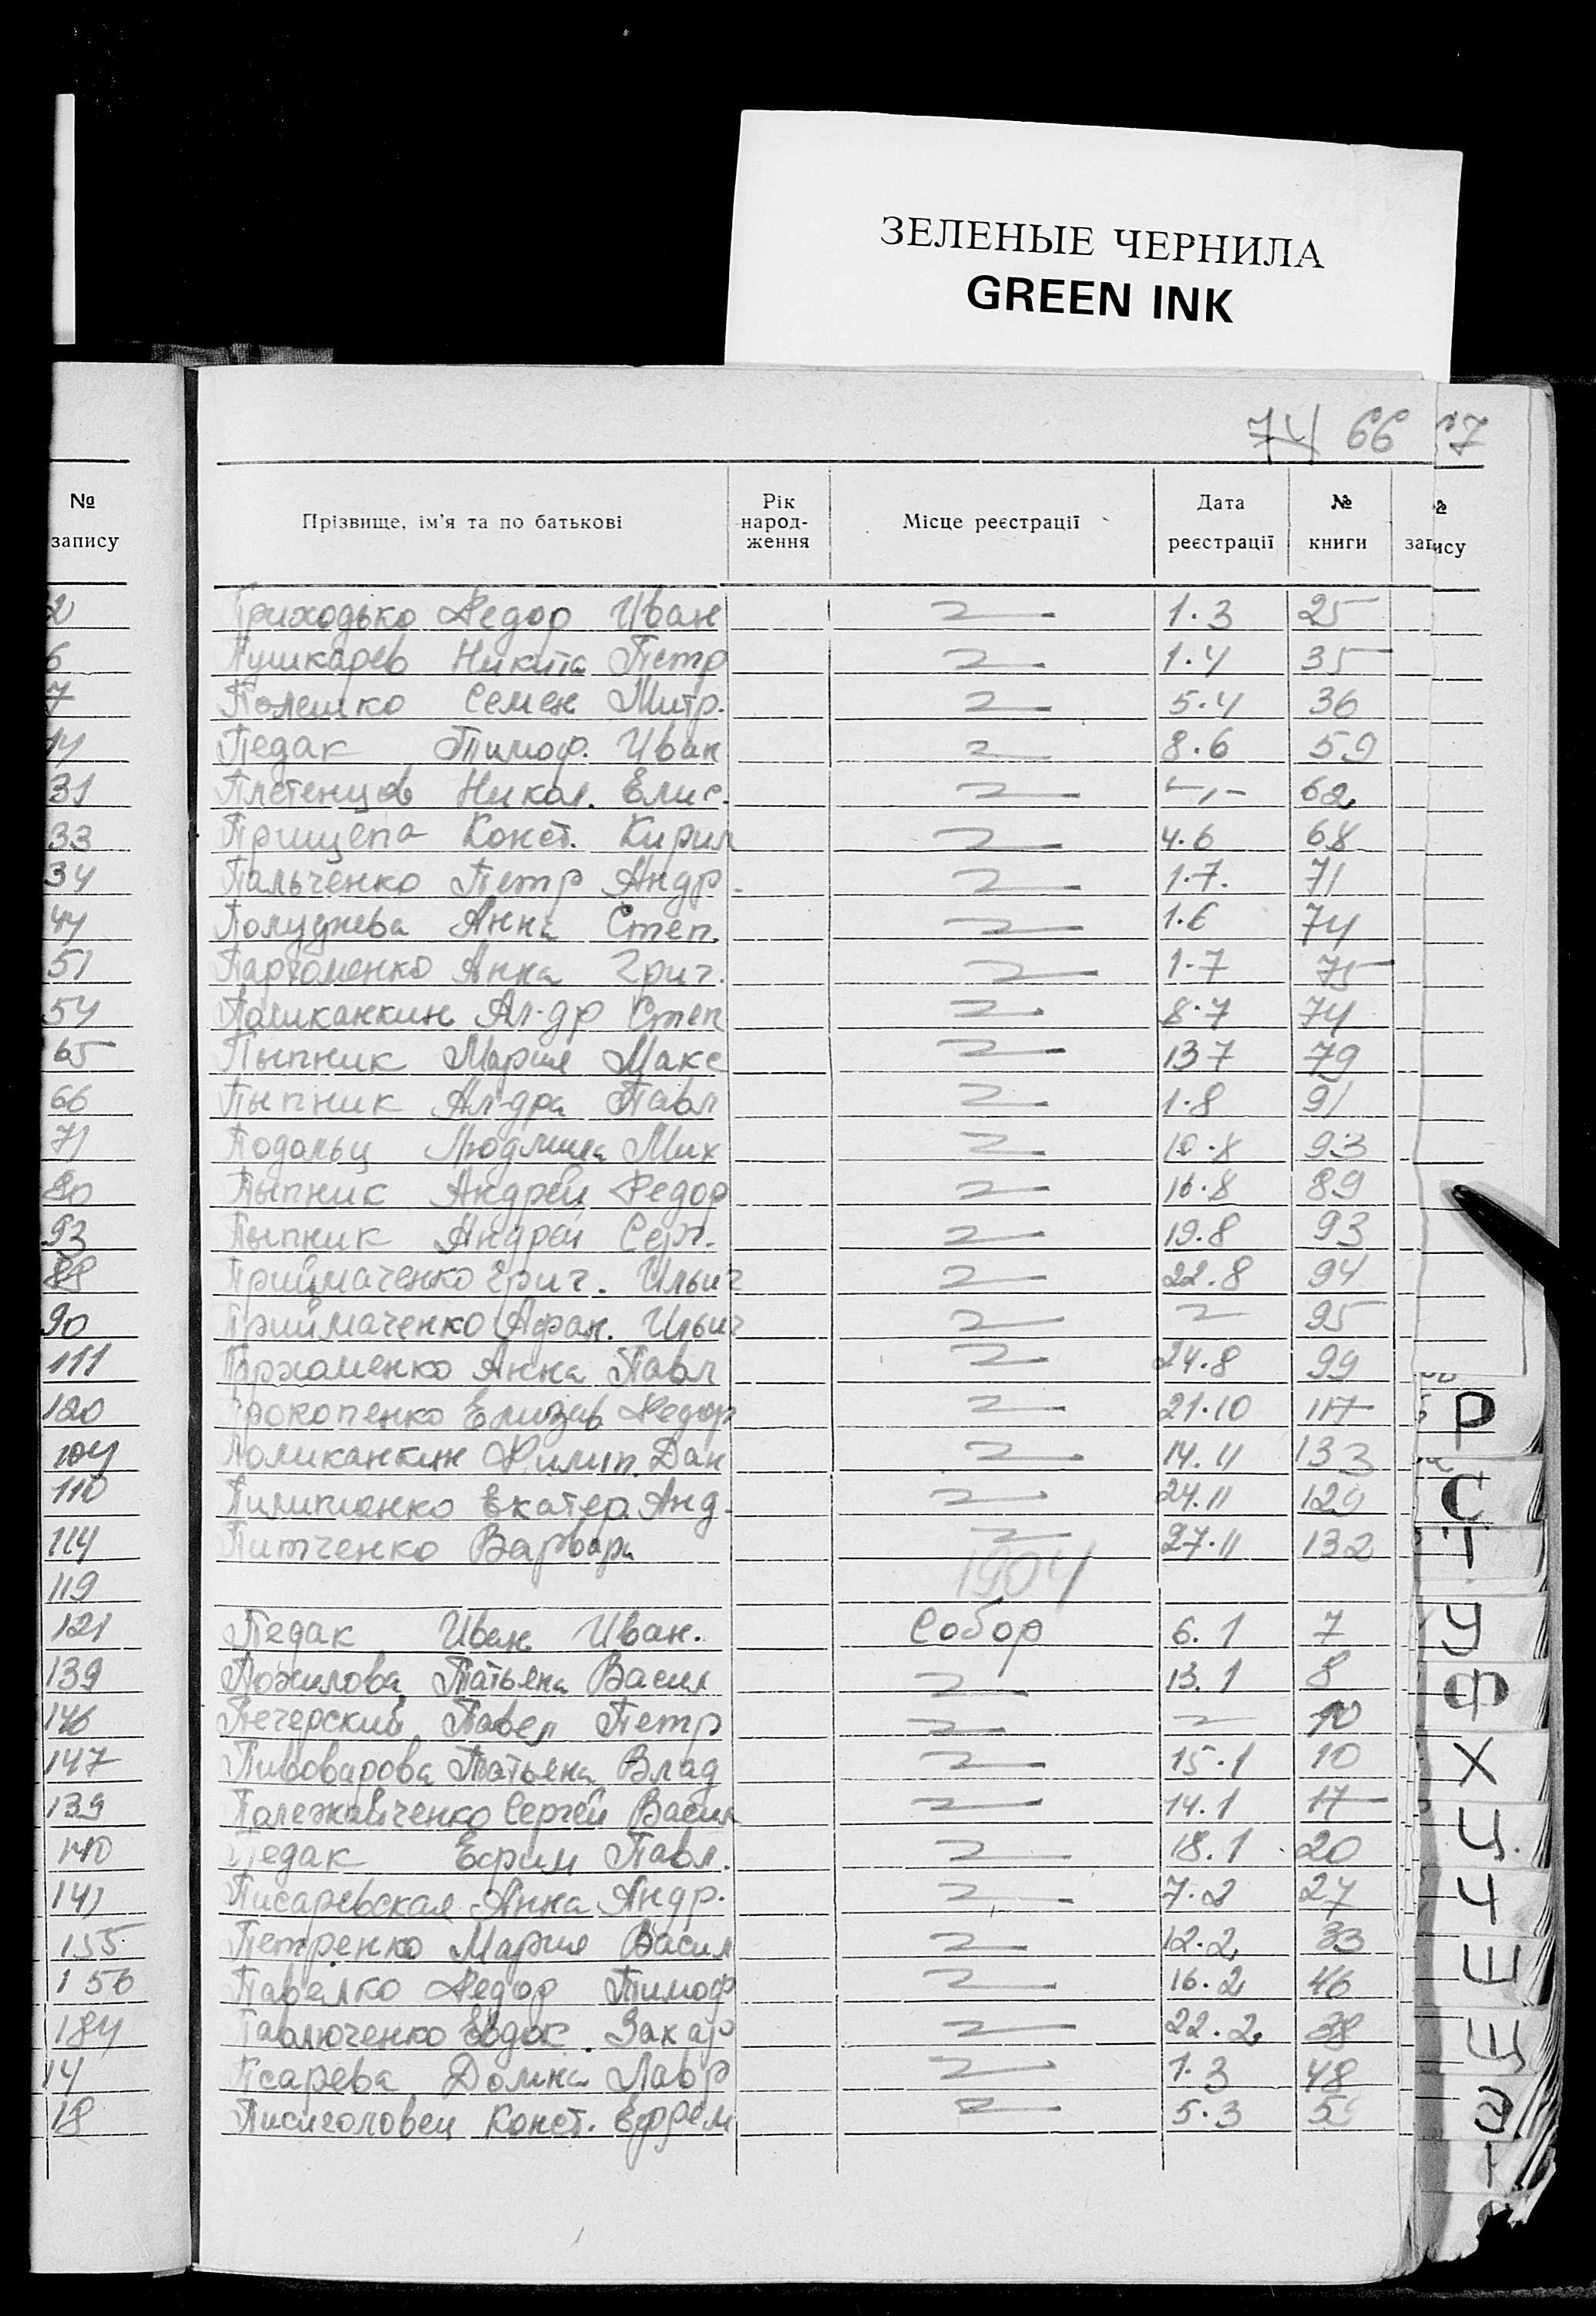 ЗЕЛЕНЫЕ ЧЕРНИЛА
GREEN INK
74 66 67
№ запису Прізвище, ім’я та по батькові Рік народ-ження Місце реєстрації Дата реєстрації № книги № запису
2 Приходько Федор Иван 1.3 25
6 Пушкарев Никита Петр 1.4 35
7 Полешко Семен Митр. 5.4 36
14 Педак Тимоф. Иван 8.6 59
31 Плетенцов Никол. Елис. -"- 62
33 Прищепа Конст. Кирил 4.6 68
34 Пальченко Петр Андр. 1.7. 71
44 Анна Степ. 1.6 74
51 Пархоменко Анна Григ. 1.7 75
54 Поликанкин Ал-др Степ 8.7 74
65 Пыпник Мария Макс 13 7 79
66 Пыпник Ал-дра Павл 1.8 91
71 Подольц Людмила Мих 10.8 93
80 Пыпник Андрей Федор 16.8 89
93 Пыпник Андрей Серг. 19.8 93
88 Приймаченко Григ. Ильич 22.8 94
90 Приймаченко Афан. Ильич 95
111 Пархоменко Анна Павл 24.8 99
120 Прокопенко Елизав Федор 21.10 117
104 Поликанкин Филип. Дан 14.11 133
110 Пилипионко Екатер. Анд. 24.11 129
114 Питченко Варвара 27.11 132
119 1904
121 Педак Иван Иван. Собор 6.1 7
139 Пожилова Татьяна Васил 13.1 8
146 Печерский Павел Петр 10
147 Пивоварова Татьяна Влад 15.1 10
139 Полежайченко Сергей Васил 14.1 17
140 Педак Ефим Павл. 18.1 20
141 Писаревская Анна Андр. 7.2 27
155 Петренко Мария Васил 12.2 33
156 Павелко Федор Тимоф 16.2 46
184 Павлюченко Евдок. Захар 22.2 38
14 Псарева Домна Лавр 1.3 48
18 Писиголовец Конст. Ефрем 5.3
Р
С
Т
У
Ф
Х
Ц
Ч
Ш
Щ
Э